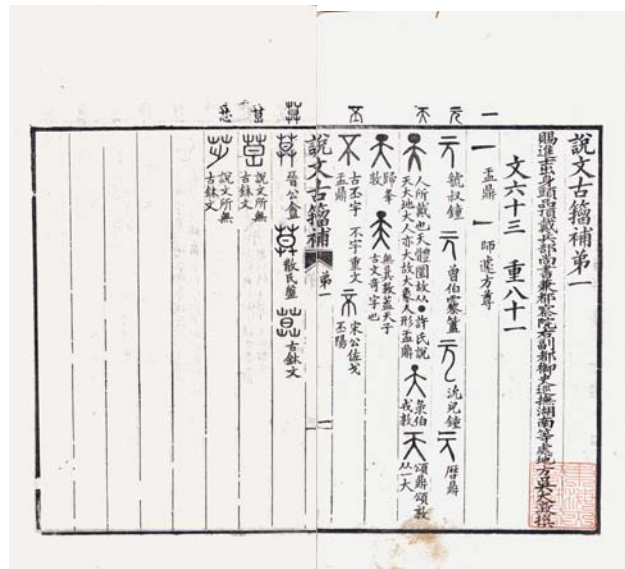 一
元
天
丕
說文古籀補弟一
賜進士出身頭品頂戴兵部尚書兼都察院右副都御史巡撫湖南等處地方吳大澂撰
文六十三 重八十一
一 盂鼎 一 師遽方尊
元 虢叔鐘 元 曾伯霥簠 元 沇兒鐘 元 曆鼎
天 人所戴也天體圜故从●許氏說天大地大人亦大故大象人形盂鼎 天 彔伯戎敦 天 頌鼎頌敦从一大
天 歸夆敦 天 無㠱敦蓋天子古文奇字也
不 古丕字不字重文盂鼎 不 宋公佐戈丕陽
說文古籀補 弟一 一
晉公盦 散氏盤 古鉢文
說文所無古鉢文
說文所無古鉢文